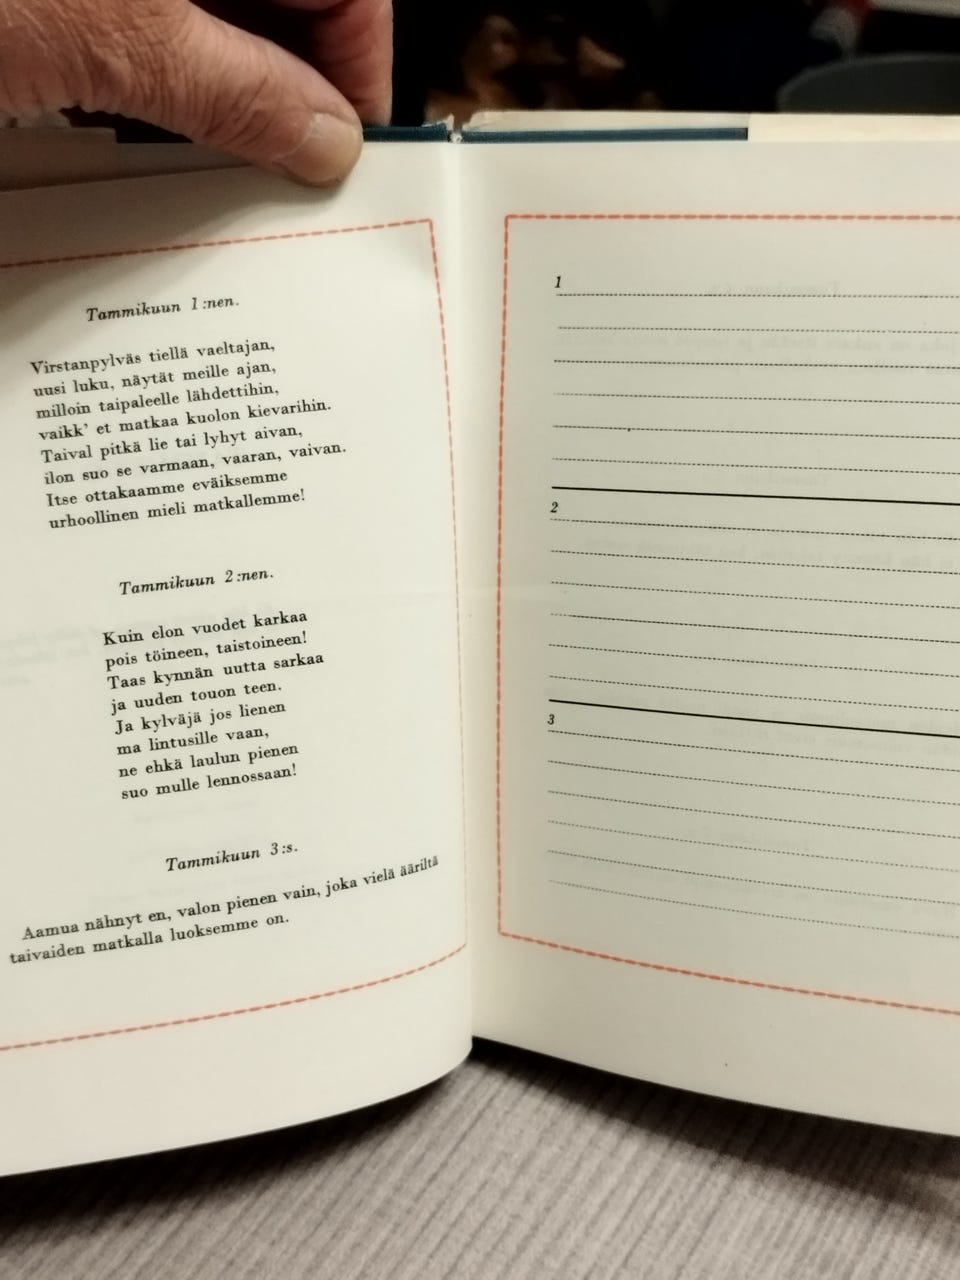 Tammikuun 1:nen.
Virstanpylväs tiellä vaeltajan,
uusi luku, näytät meille ajan,
milloin taipaleelle lähdettihin,
vaikk' et matkaa kuolon kievarihin.
Taival pitkä lie tai lyhyt aivan,
ilon suo se varmaan, vaaran, vaivan.
Itse ottakaamme eväiksemme
urhoollinen mieli matkallemme!
Tammikuun 2:nen.
Kuin elon vuodet karkaa
pois töineen, taistoineen!
Taas kynnän uutta sarkaa
ja uuden touon teen.
Ja kylväjä jos lienen
ma lintusille vaan,
ne ehkä laulun pienen
suo mulle lennossaan!
Tammikuun 3:s.
Aamua nähnyt en, valon pienen vain, joka vielä ääriltä
taivaiden matkalla luoksemme on.
1
2
3